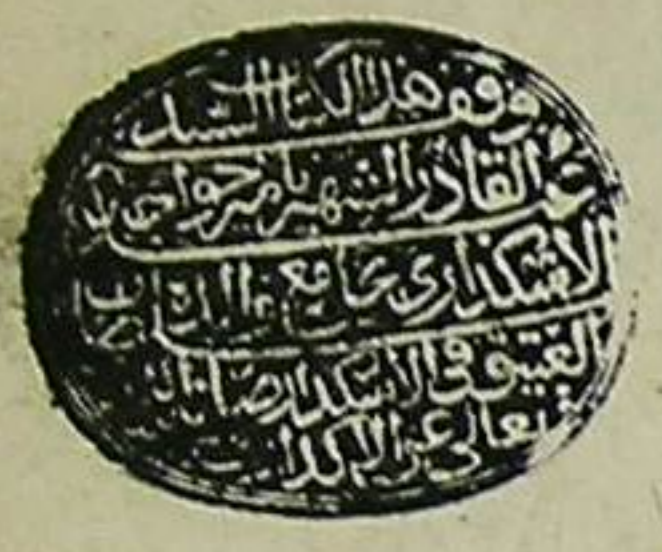 وقف هذا الكتاب السيد
عبد القادر الشهير بامير خواجه
الاسكداري بجامع والدة
العتيق في الاسكدار صانه
تعالى عن الاكدار